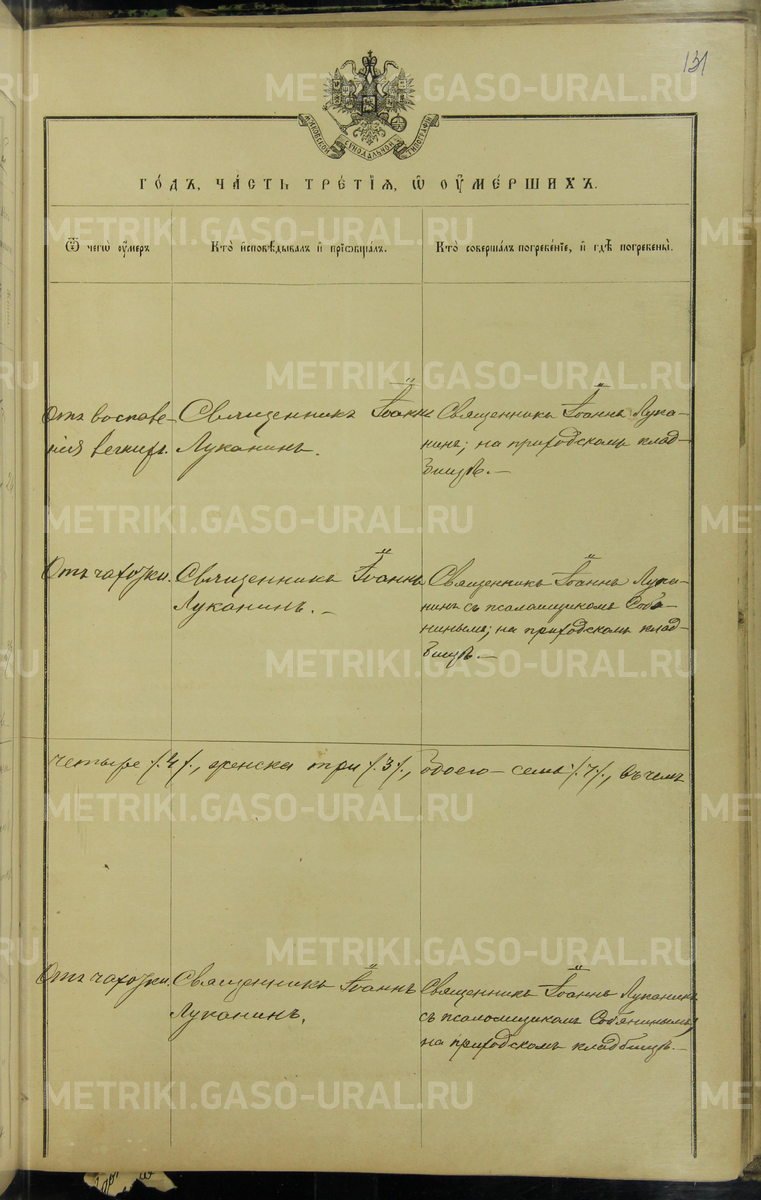 131
МОСКОВСКОЙ СѴНОДАЛЬНОЙ ТИПОГРАФІИ
ГО́ДЪ, ЧА́СТЬ ТРЕ́ТІѦ, Ѡ ОУМЕ́РШИХЪ.
Ѿ чегѡ̀ оу́меръ
Кто̀ и҆сповѣ́дывалъ и҆ прїѡбща́лъ.
Кто̀ соверша́лъ погребе́нїе, и҆ гдѣ̀ погребены̀.
Отъ воспале-
нія
Священникъ Іоаннъ
Луканинъ.
Священникъ Іоаннъ Лука-
нинъ; на приходскомъ клад-
бищѣ.—
Отъ чахотки.
Священникъ Іоаннъ
Луканинъ.—
Священникъ Іоаннъ Лука-
нинъ съ псаломщикомъ Собя-
нинымъ; на приходскомъ клад-
бищѣ.—
четыре /.4/., женска три /.3/., обоего – семь /.7/., въ чемъ
Отъ чахотки.
Священникъ Іоаннъ
Луканинъ.
Священникъ Іоаннъ Луканинъ
съ псаломщикомъ Собянинымъ;
на приходскомъ кладбищѣ.—
METRIKI.GASO-URAL.RU